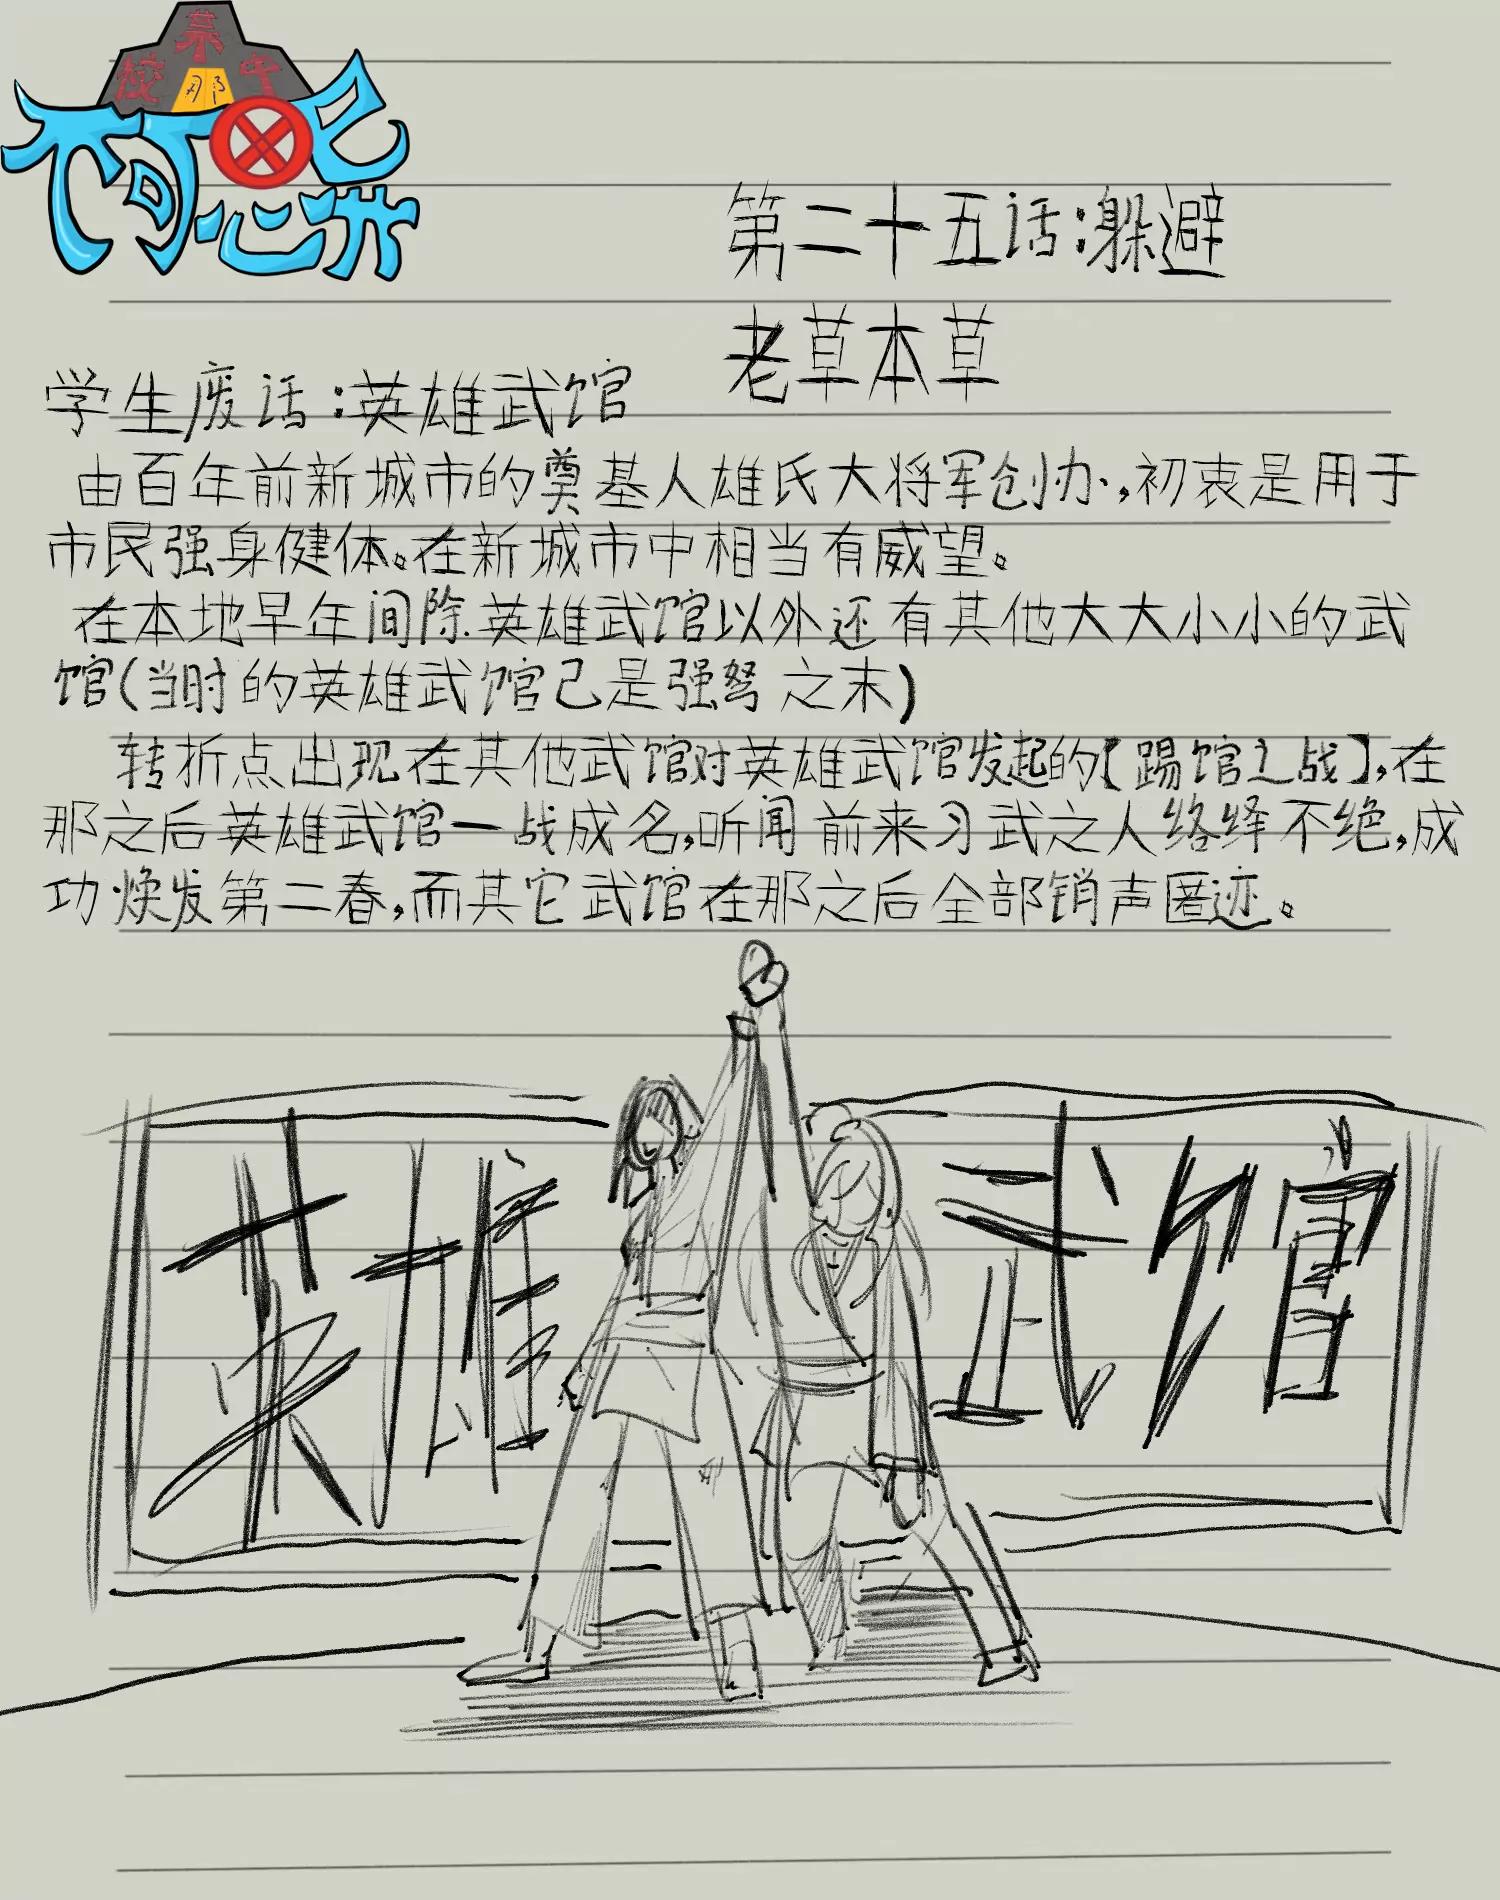 不可思异
第二十五话:躲避
老草本草
学生废话:英雄武馆
由百年前新城市的奠基人雄氏大将军创办,初衷是用于
市民强身健体。在新城市中相当有威望。
在本地早年间除英雄武馆以外还有其他大大小小的武
馆(当时的英雄武馆已是强弩之末)
转折点出现在其他武馆对英雄武馆发起的【踢馆之战】,在
那之后英雄武馆一战成名,听闻前来习武之人络绎不绝,成
功焕发第二春,而其它武馆在那之后全部销声匿迹。
英雄武馆